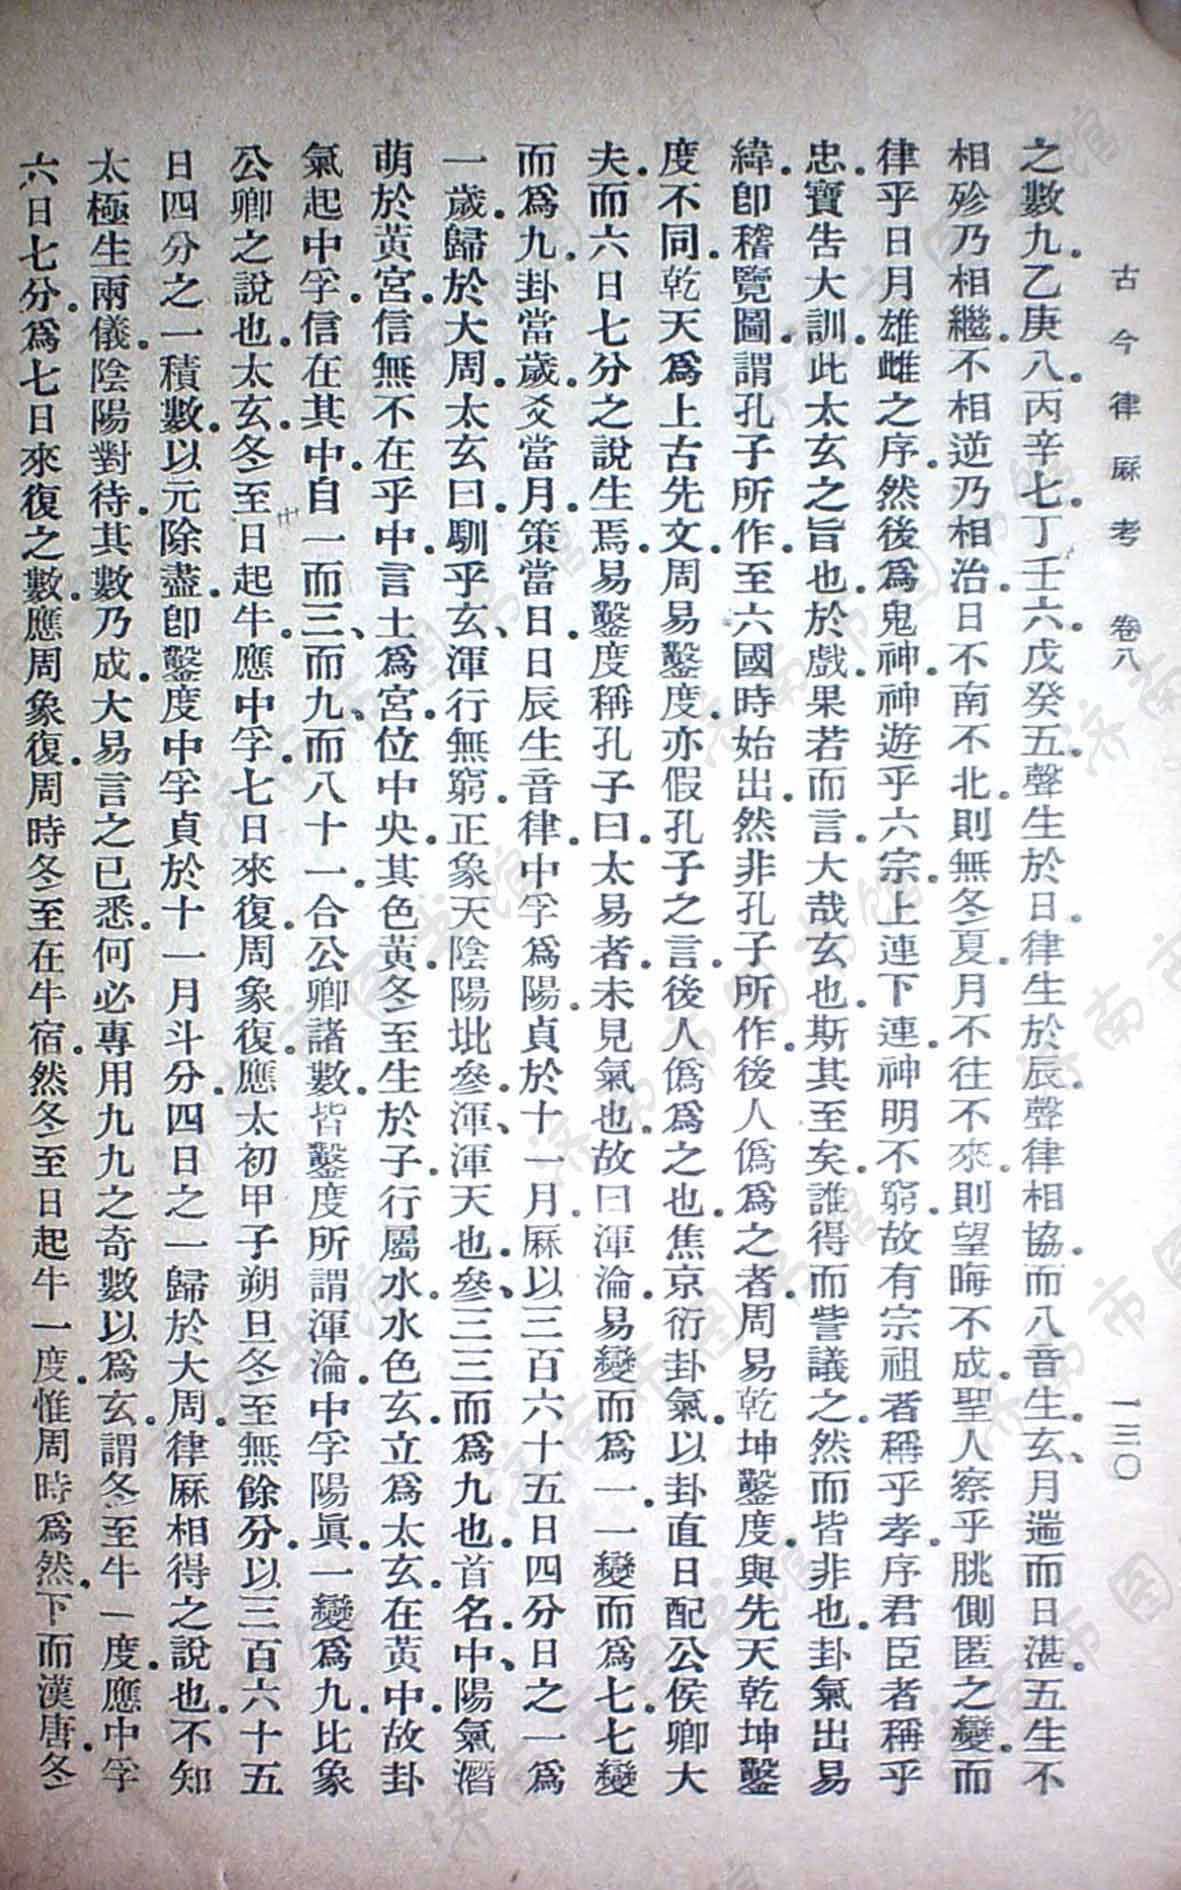 古今律厤考 卷八 一三〇
之數九。乙庚八。丙辛七。丁壬六。戊癸五。聲生於日。律生於辰。聲律相協。而八音生。玄、月遄而日湛。五生不
相殄乃相繼。不相逆乃相治。日不南不北。則無冬夏。月不往不來。則望晦不成。聖人察乎朓側匿之變。而
律乎日月雄雌之序。然後爲鬼神。神遊乎六宗。上連下連。神明不窮。故有宗祖者稱乎孝。序君臣者稱乎
忠。寶告大訓。此太玄之旨也。於戲。果若而言。大哉玄也。斯其至矣。誰得而訾議之。然而皆非也。卦氣出易
緯。卽稽覽圖。謂孔子所作。至六國時始出。然非孔子所作。後人僞爲之者。周易乾坤鑿度。與先天乾坤鑿
度不同。乾天爲上古先文。周易鑿度。亦假孔子之言。後人僞爲之也。焦京衍卦氣。以卦直日。配公侯卿大
夫。而六日七分之說生焉。易鑿度稱孔子曰。太易者。未見氣也。故曰渾淪。易變而爲一。一變而爲七。七變
而爲九。卦當歲。爻當月。策當日。日辰生音律。中孚爲陽。貞於十一月。厤以三百六十五日四分日之一爲
一歲。歸於大周。太玄曰。馴乎玄、渾行無窮。正象天。陰陽坒參。渾、渾天也。參、三三而爲九也。首名。中、陽氣潛
萌於黃宮。信無不在乎中。言土爲宮。位中央。其色黃。冬至生於子。行屬水。水色玄。立爲太玄。在黃中。故卦
氣起中孚。信在其中。自一而三、而九、而八十一。合公卿諸數。皆鑿度所謂渾淪。中孚陽眞。一變爲九。比象
公卿之說也。太玄。冬至日起牛。應中孚。七日來復。周象復。應太初甲子朔旦冬至無餘分。以三百六十五
日四分之一積數。以元除盡。卽鑿度中孚貞於十一月斗分。四日之一。歸於大周。律厤相得之說也。不知
太極生兩儀。陰陽對待。其數乃成。大易言之已悉。何必專用九九之奇數以爲玄。謂冬至牛一度。應中孚
六日七分。爲七日來復之數。應周象復。周時冬至在牛宿。然冬至日起牛一度。惟周時爲然。下而漢唐。冬